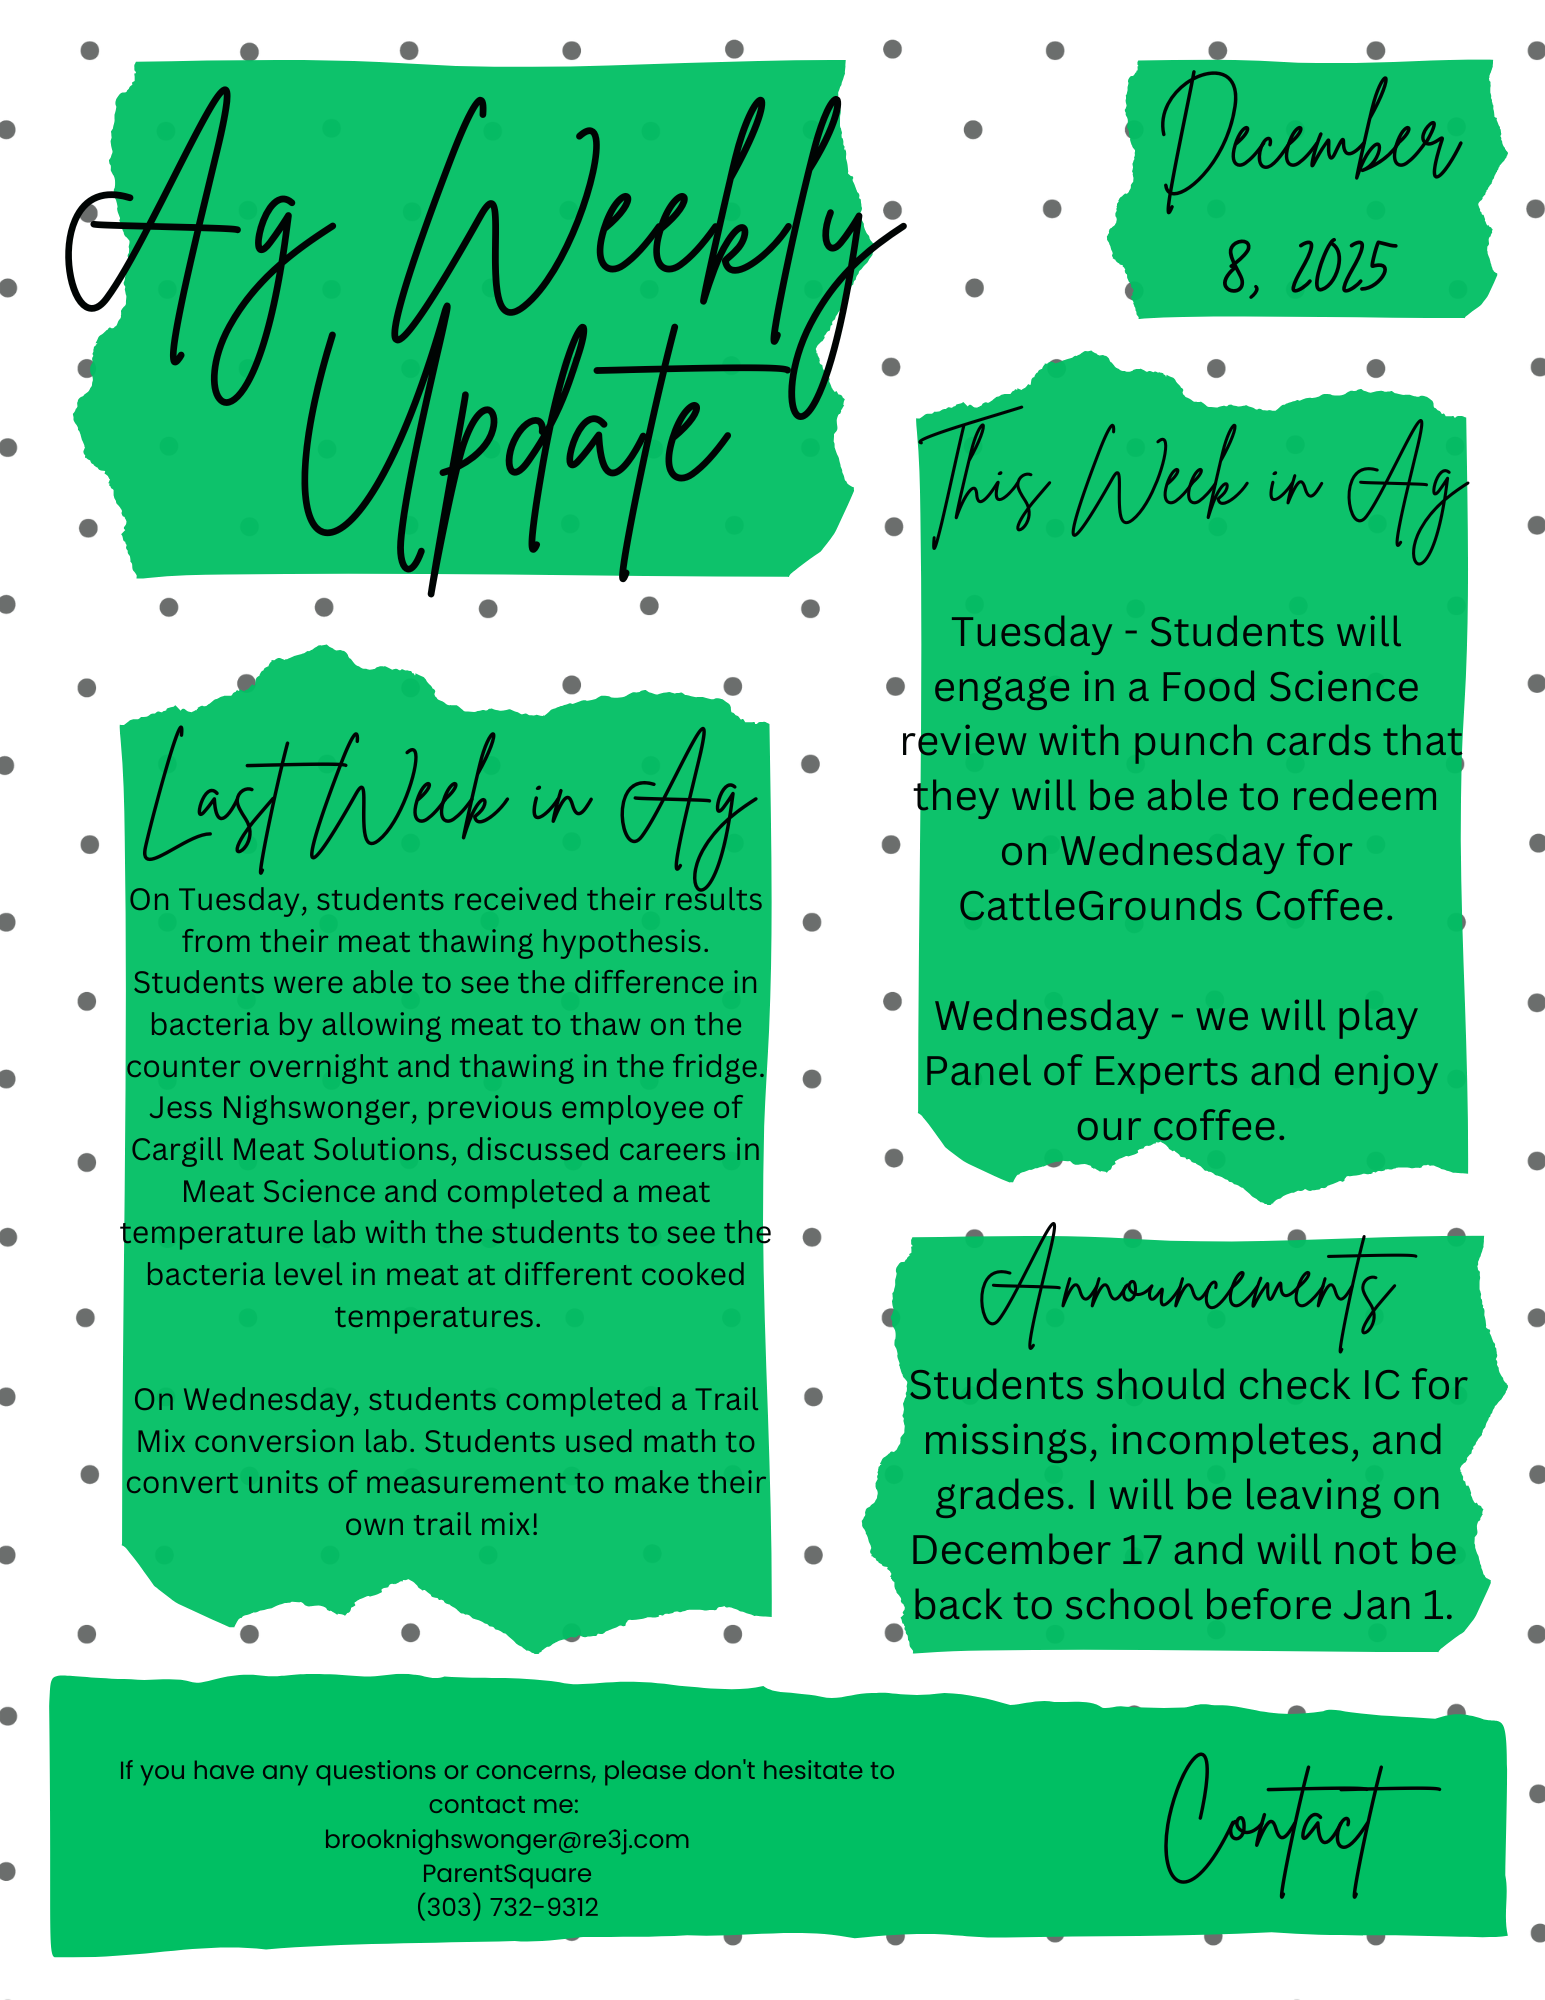 Ag Weekly
Update
December
8, 2025
Last Week in Ag
On Tuesday, students received their results
from their meat thawing hypothesis.
Students were able to see the difference in
bacteria by allowing meat to thaw on the
counter overnight and thawing in the fridge.
Jess Nighswonger, previous employee of
Cargill Meat Solutions, discussed careers in
Meat Science and completed a meat
temperature lab with the students to see the
bacteria level in meat at different cooked
temperatures.
On Wednesday, students completed a Trail
Mix conversion lab. Students used math to
convert units of measurement to make their
own trail mix!
This Week in Ag
Tuesday - Students will
engage in a Food Science
review with punch cards that
they will be able to redeem
on Wednesday for
CattleGrounds Coffee.
Wednesday - we will play
Panel of Experts and enjoy
our coffee.
Announcements
Students should check IC for
missings, incompletes, and
grades. I will be leaving on
December 17 and will not be
back to school before Jan 1.
If you have any questions or concerns, please don't hesitate to
contact me:
brooknighswonger@re3j.com
ParentSquare
(303) 732-9312
Contact